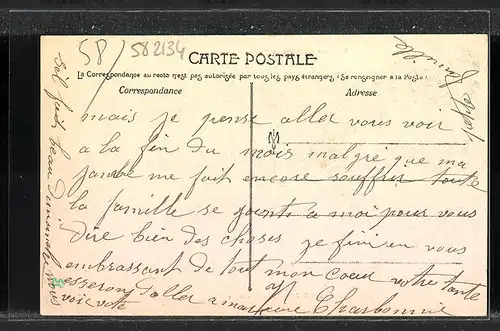 58/
582134
CARTE POSTALE
La Correspondance au recto n'est pas autorisée par tous les pays étrangers (Se renseigner à la Poste)
Correspondance
Adresse
M
mais je pense aller vous voir
a la fin du mois malgré que ma
jambe me fait encore souffrir toute
la famille se joint a moi pour vous
Dire bien des choses je finis en vous
embrassant de tout mon coeur votre tante
Charbonnié
sil fait beau Dimanche nous
esserons d'aller a
voir vote
famille